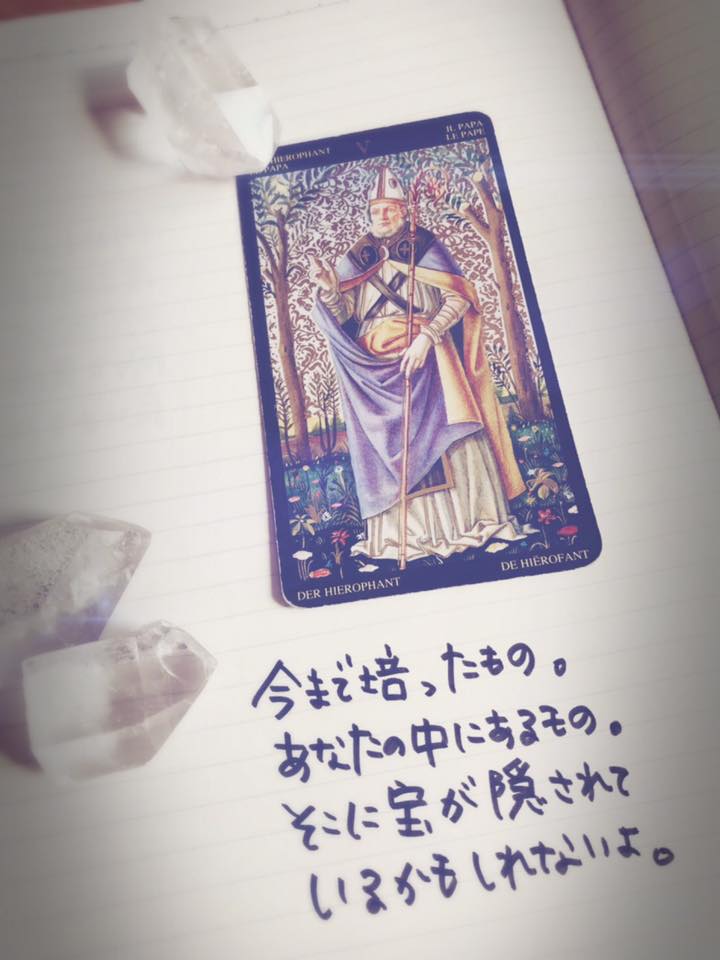 HIEROPHANT
PAPA
V
IL PAPA
LE PAPE
DER HIEROPHANT
DE HIËROFANT
今まで培ったもの。
あなたの中にあるもの。
そこに宝が隠されて
いるかもしれないよ。